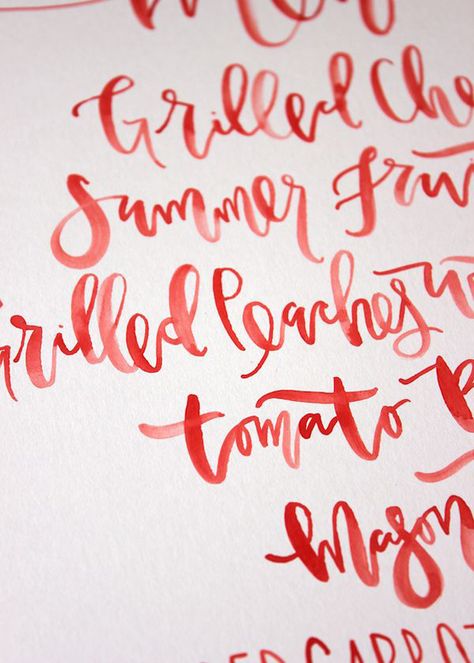 Grilled Che
Summer Fru
Grilled Peaches w
tomato B
Mason